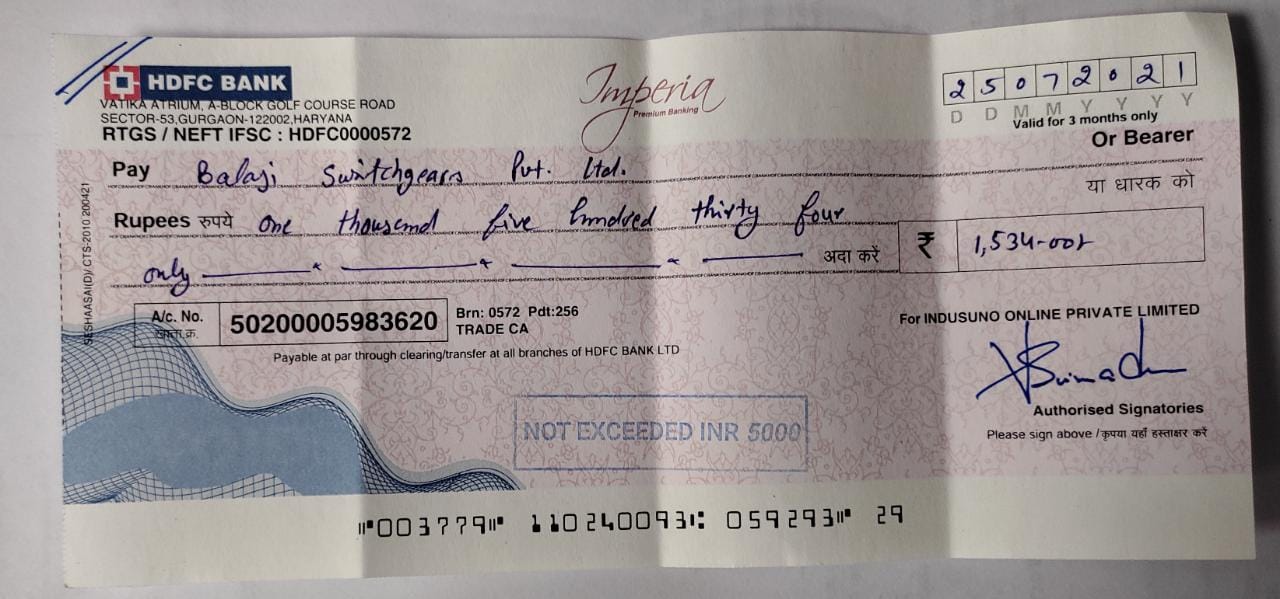 HDFC BANK
VATIKA ATRIUM, A-BLOCK GOLF COURSE ROAD
SECTOR-53,GURGAON-122002,HARYANA
RTGS / NEFT IFSC : HDFC0000572
Imperia
Premium Banking
2 5 0 7 2 0 2 1
D D M M Y Y Y Y
Valid for 3 months only
Or Bearer
या धारक को
Pay Balaji Switchgears Pvt. Ltd.
Rupees रुपये One thousand five hundred thirty four
only अदा करें ₹ 1,534-00/-
A/c. No. 50200005983620
खाता क्र.
Brn: 0572 Pdt:256
TRADE CA
Payable at par through clearing/transfer at all branches of HDFC BANK LTD
For INDUSUNO ONLINE PRIVATE LIMITED
Authorised Signatories
Please sign above / कृपया यहाँ हस्ताक्षर करें
NOT EXCEEDED INR 5000
⑈003779⑈ 110240093⑆ 059293⑈ 29
SESHAASAI(D)/ CTS-2010 200421